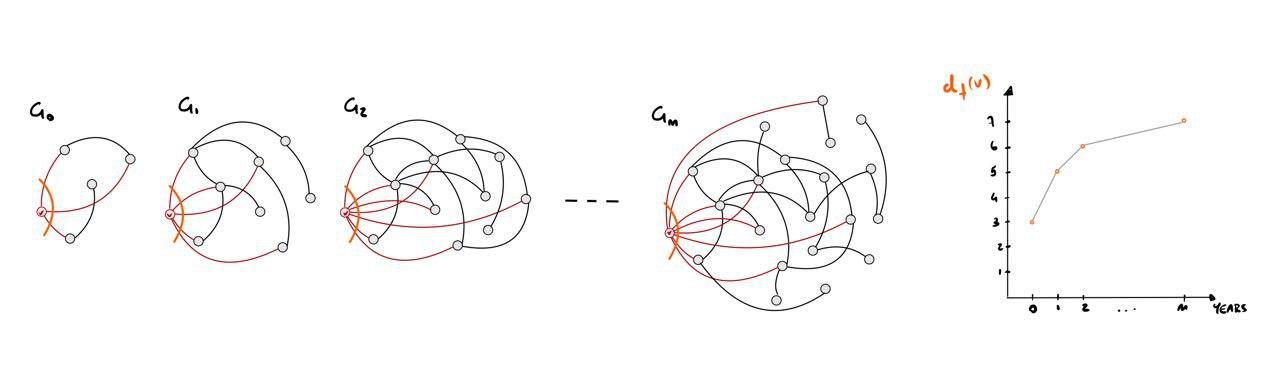 G₀
G₁
G₂
Gₘ
v
v
v
v
d_t(v)
7
6
5
4
3
2
1
0 1 2 ... m YEARS